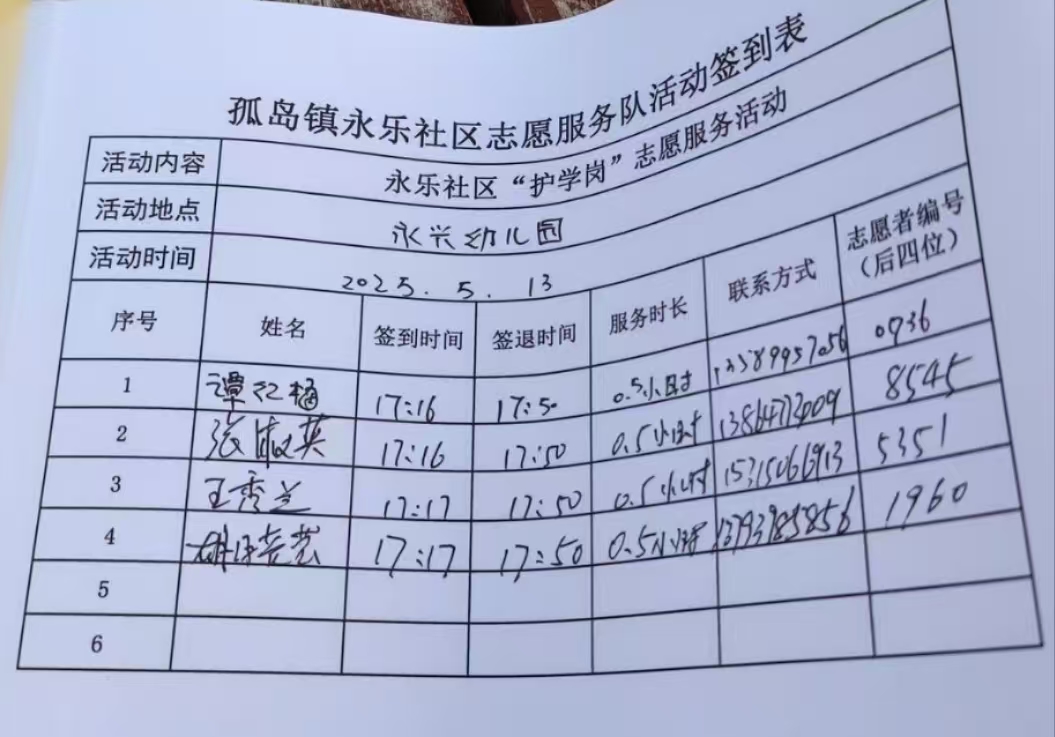 孤岛镇永乐社区志愿服务队活动签到表
活动内容 永乐社区“护学岗”志愿服务活动
活动地点 永兴幼儿园
活动时间 2025.5.13
序号 姓名 签到时间 签退时间 服务时长 联系方式 志愿者编号（后四位）
1 谭红梅 17:16 17:50 0.5小时 13589957056 0936
2 张淑英 17:16 17:50 0.5小时 8545
3 王秀兰 17:17 17:50 0.5小时 5351
4 17:17 17:50 0.5小时 13793985856 1960
5
6